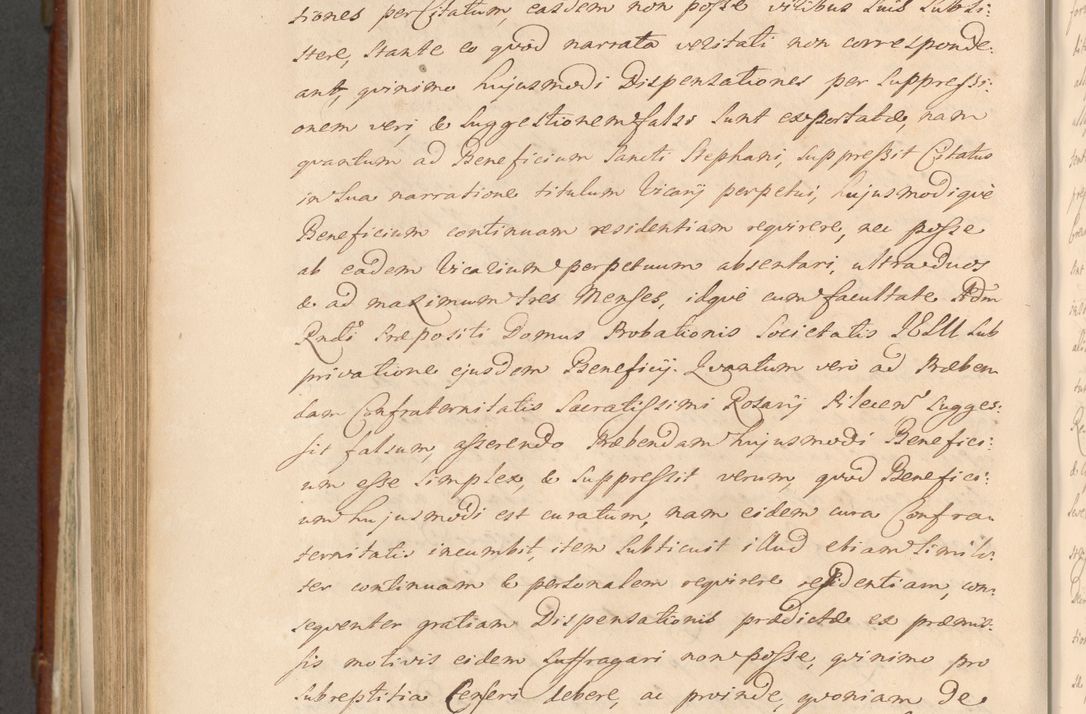 tiones per Citatum, easdem non posse viribus suis subsi:
stere, stante eo quòd narrata veritati non corresponde:
ant, quinimo hujusmodi Dispensationes per suppressi:
onem veri, & suggestionem falsi sunt exportatæ, nam
quantum ad Beneficium Sancti Stephani, suppressit Citatus
in sua narratione titulum Vicarij perpetui, hujusmodiquè
Beneficium continuam residentiam requirere, nec posse
ab eadem Vicarium perpetuum absentari, ultra duos
& ad maximum tres Menses, idquè cum facultate Adm
Rndi Præpositi Domus Probationis Societatis IESU sub
privatione ejusdem Beneficij. Quantum verò ad Præben
dam Confraternitatis Sacratissimi Rosarij Pilecen sugges:
sit falsum, asserendo Præbendam hujusmodi Benefici:
um esse simplex, & suppressit verum, quòd Benefici:
um hujusmodi est curatum, nam eidem cura Confra:
ternitatis incumbit, item subticuit illud etiam simili:
ter continuam & personalem requirere residentiam, con:
sequenter gratiam Dispensationis prædictæ ex præmis:
sis motivis eidem suffragari non posse, quinimo pro
subreptitia Censeri debere, ac proinde, quoniam de